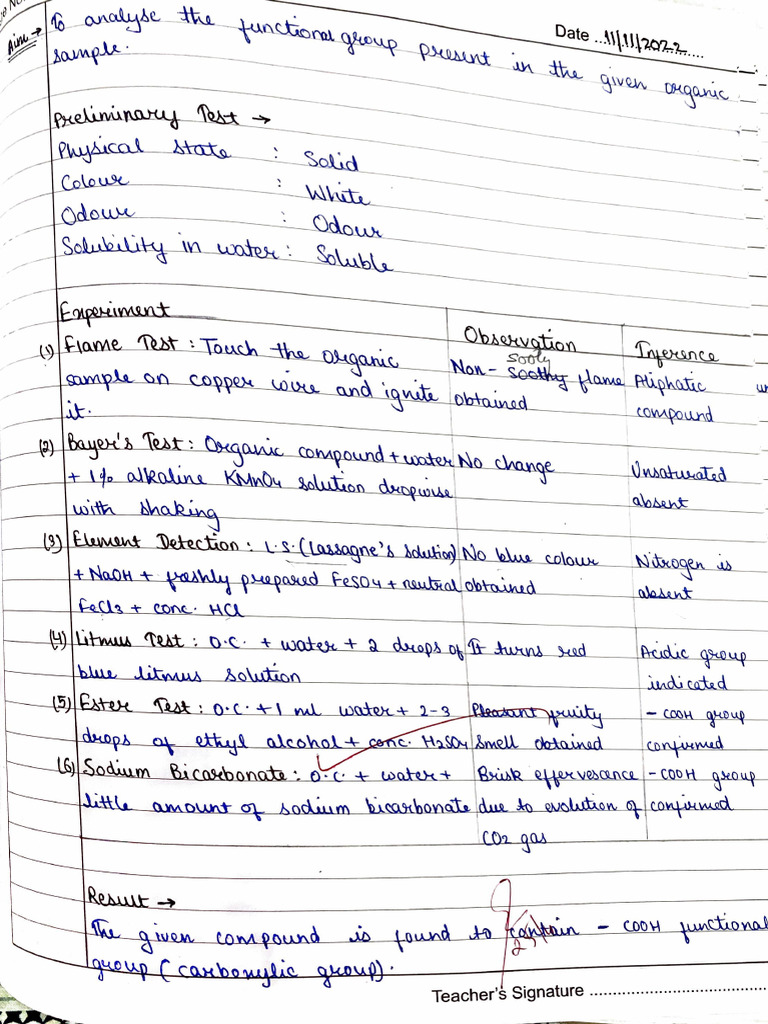 Aim →
Date ...11/11/2022....
To analyse the functional group present in the given organic
sample.
Preliminary Test →
Physical state : Solid
Colour : White
Odour : Odour
Solubility in water : Soluble
Experiment Observation Inference
(1) Flame Test : Touch the organic
sample on copper wire and ignite
it.
Non - soothy sooty flame
obtained
Aliphatic
compound
(2) Bayer's Test : Organic compound + water
+ 1% alkaline KMnO4 solution dropwise
with shaking
No change
Unsaturated
absent
(3) Element Detection : L.S. (Lassagne's solution)
+ NaOH + freshly prepared FeSO4 + neutral
FeCl3 + conc. HCl
No blue colour
obtained
Nitrogen is
absent
(4) Litmus Test : O.C. + water + 2 drops of
blue litmus solution
It turns red
Acidic group
indicated
(5) Ester Test : O.C. + 1 ml water + 2-3
drops of ethyl alcohol + conc. H2SO4
Pleasant fruity
smell obtained
- COOH group
confirmed
(6) Sodium Bicarbonate : O.C. + water +
little amount of sodium bicarbonate
Brisk effervesance
due to evolution of
CO2 gas
- COOH group
confirmed
Result →
The given compound is found to contain - COOH functional
group (carboxylic group).
Teacher's Signature ........................................